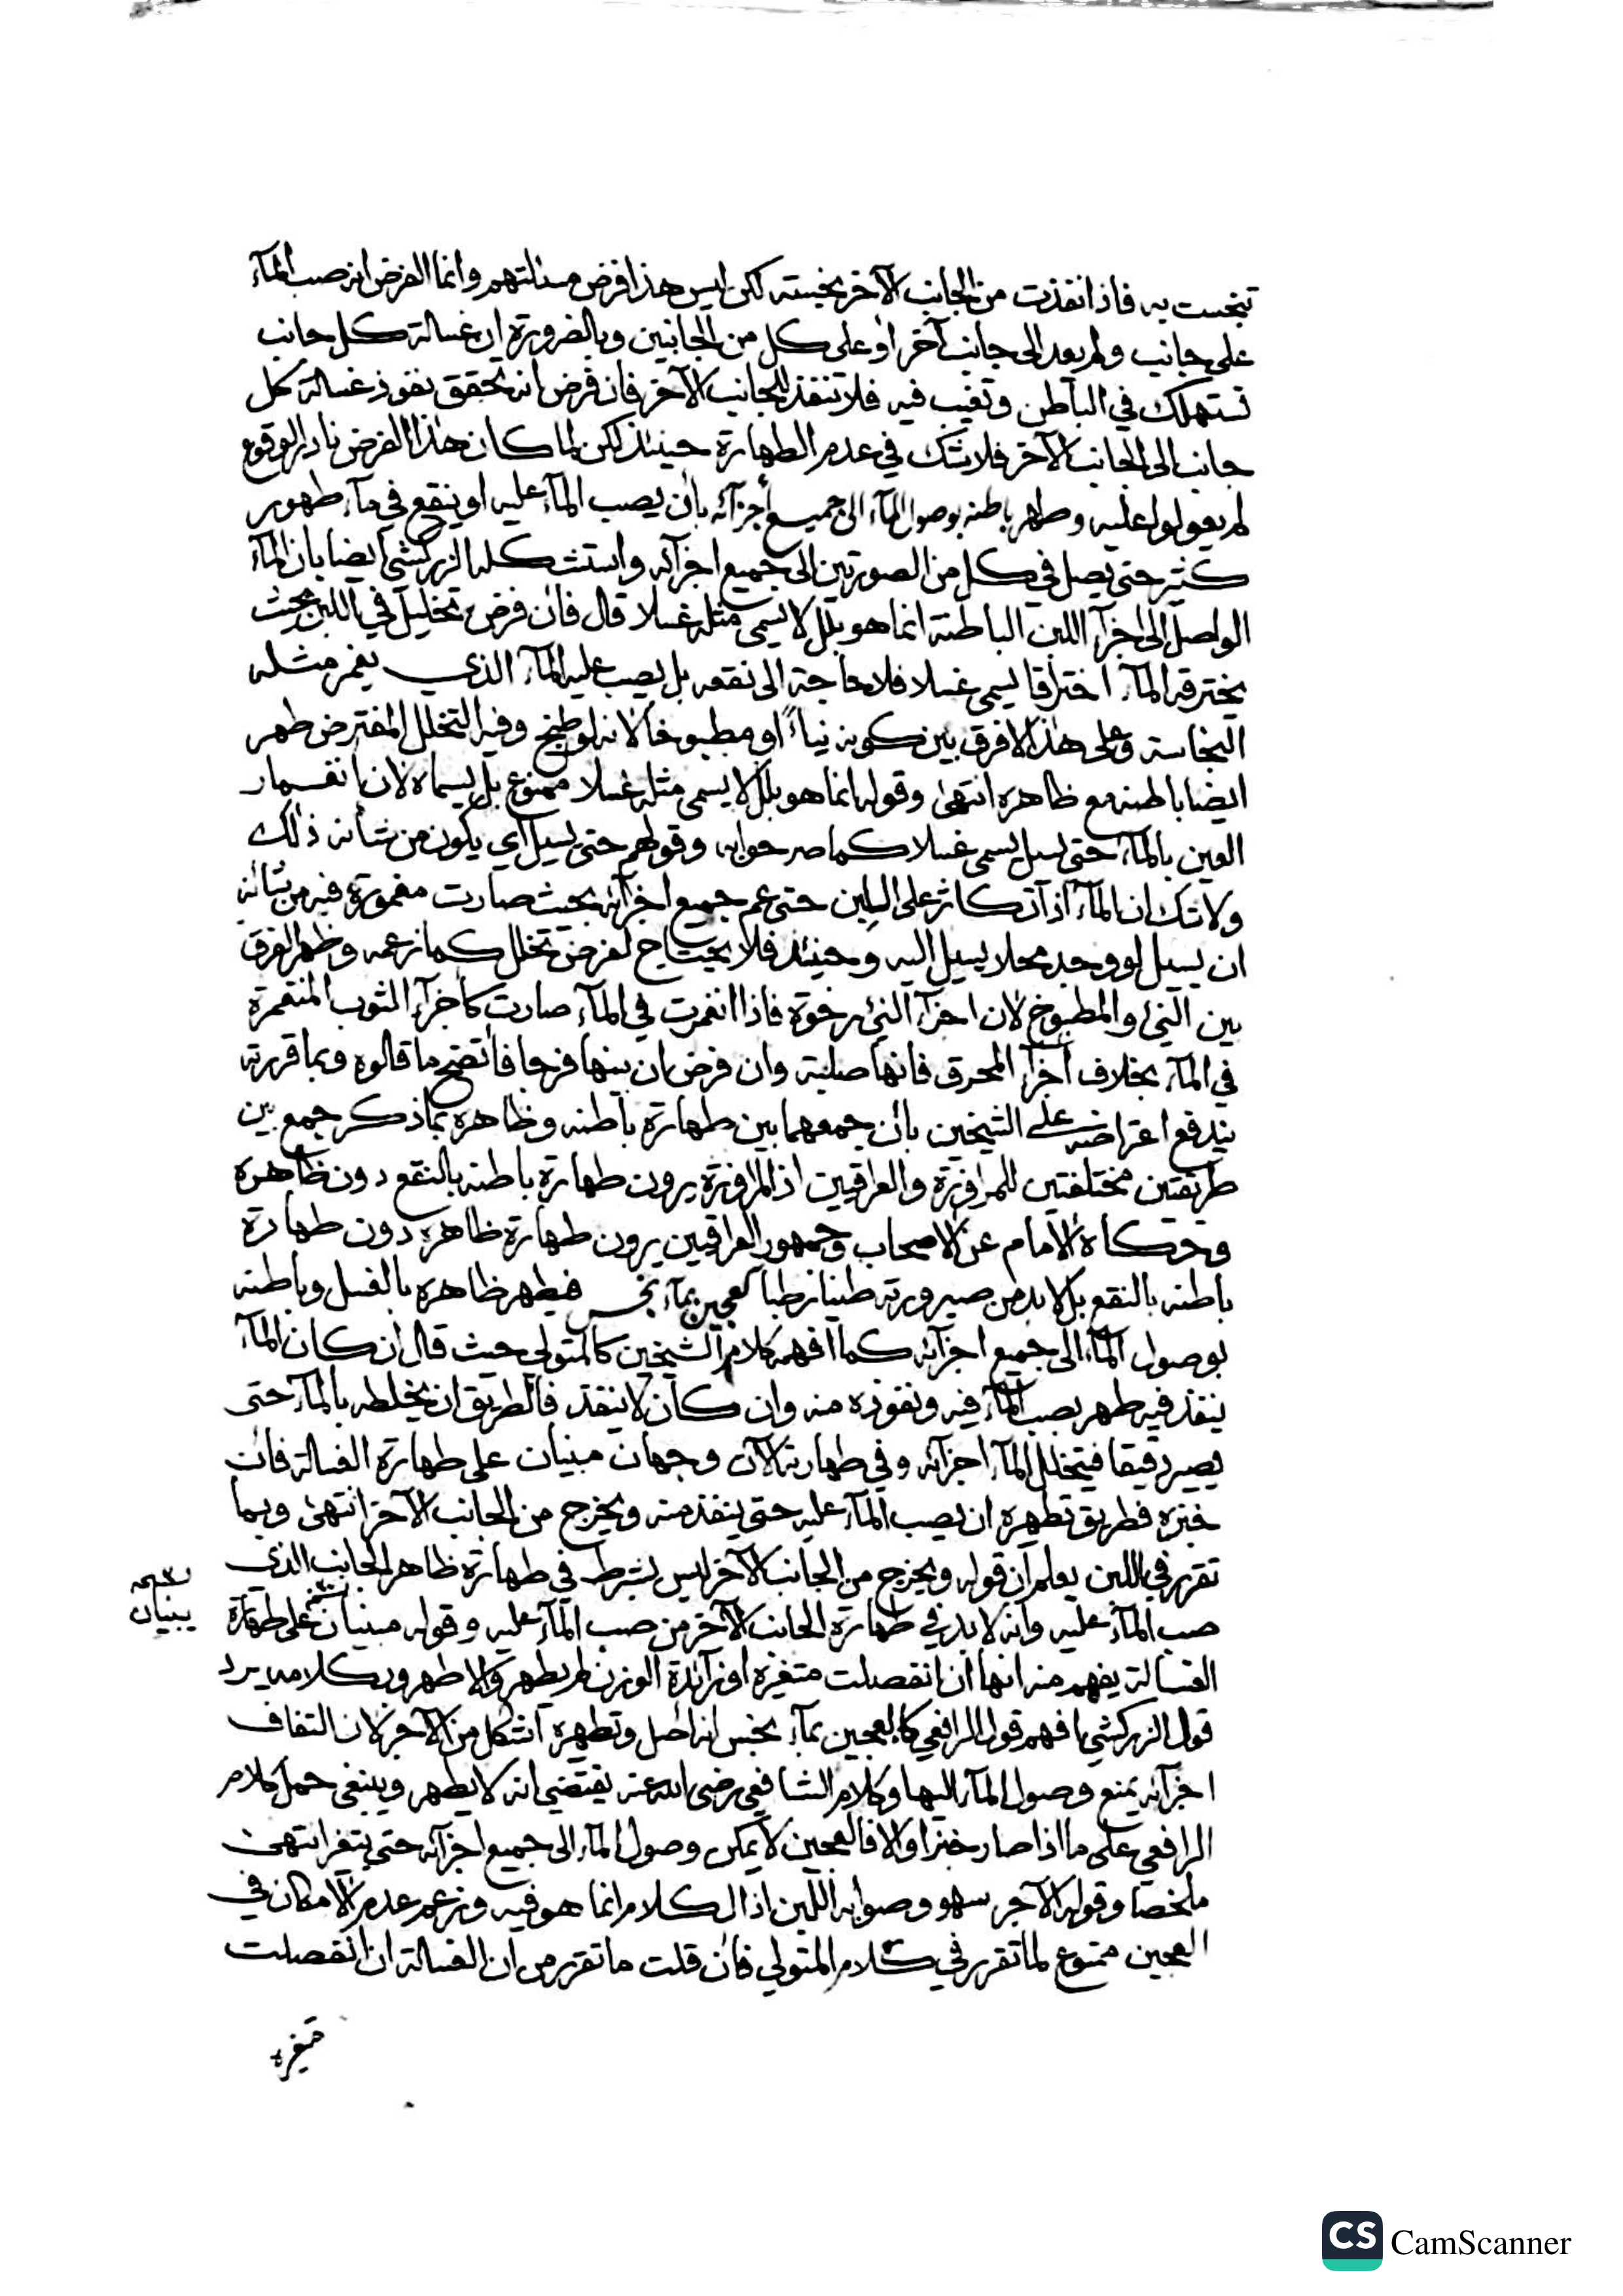 تنجست به فاذا نفذت من الجانب الآخر نجسته لكن ليس هذا فرض مسئلتهم وانما الفرض انه صب المآء
على جانب ولم يعد الى جانب آخر او على كل من الجانبين وبالضرورة ان غسالة كل جانب
تستهلك في الباطن وتغيب فيه فلا تنفذ للجانب الآخر فان فرض انه تحقق نفوذ غسالة كل
جانب الى الجانب الآخر فلا يشك في عدم الطهارة حينئذ لكن لما كان هذا الفرض نادر الوقوع
لم يعولوا عليه وطهر باطنه بوصول المآء الى جميع أجزآئه بان يصب المآء عليه او ينقع في مآء طهور
كثير حتى يصل في كل من الصورتين الى جميع اجزآئه واستشكله الزركشي ايضا بان المآء
الواصل الى اجزآء اللبن الباطنة انما هو بلل لا يسمى مثله غسلا قال فان فرض تخليل في اللبن بحيث
يخترقه المآء اختراقا يسمى غسلا فلا حاجة الى نقعه بل يصب عليه المآء الذي يغمر مثله
النجاسة وعلى هذا لا فرق بين كونه نياء او مطبوخا لانه لو طبخ وفيه التخلل المفترض طهر
ايضا باطنه مع ظاهره انتهى وقوله انما هو بلل لا يسمى مثله غسلا ممنوع بل يسماه لان انغمار
العين بالمآء حتى يسيل يسمى غسلا كما صرحوا به وقولهم حتى يسيل اي يكون من شأنه ذلك
ولا شك ان المآء اذا تكاثر على اللبن حتى عم جميع اجزآئه بحيث صارت مغمورة فيه من شانه
ان يسيل لو وجد محلا يسيل اليه وحينئذ فلا يحتاج لفرض تخلل كما زعمه وظهر الفرق
بين النئ والمطبوخ لان اجزآء النئ رخوة فاذا انغمرت في المآء صارت كاجزآء الثوب المنغمرة
في المآء بخلاف اجزآء المحرق فانها صلبة وان فرض ان بينها فرجا فاتضح ما قالوه وبما قررته
يندفع اعتراضه على الشيخين بان جمعهما بين طهارة باطنه وظاهره بما ذكر جمع بين
طريقتين مختلفتين للمراوزة والعراقيين اذ المراوزة يرون طهارة باطنه بالنقع دون ظاهره
وحكاه الامام عن الاصحاب وجمهور العراقيين يرون طهارة ظاهره دون طهارة
باطنه بالنقع بل لا بد من صيرورته طينا رطبا كعجين بمآء نجس فيطهر ظاهره بالغسل وباطنه
بوصول المآء الى جميع اجزآئه كما افهمه كلام الشيخين كالمتولي حيث قال ان كان المآء
ينفذ فيه طهر بصب المآء فيه ونفوذه منه وان كان لا ينفذ فالطريق ان يخلطه بالمآء حتى
يصير رقيقا فيتخلل المآء اجزآئه وفي طهارته الآن وجهان مبنيان على طهارة الغسالة فان
خبزه فطريق تطهره ان يصب المآء عليه حتى ينفذ منه ويخرج من الجانب الآخر انتهى وبما
تقرر في اللبن يعلم ان قوله ويخرج من الجانب الآخر ليس بشرط في طهارة ظاهر الجانب الذي
صب المآء عليه وانه لا بد في طهارة الجانب الآخر من صب المآء عليه وقوله مبنيان على طهارة
نسخة
يبنيان
الغسالة يفهم منه انها ان انفصلت متغيرة او زآئدة الوزن لم يطهر والا طهر وبكلامه يرد
قول الزركشي افهم قول الرافعي كالعجين بمآء نجس انه اصل وتطهيره اشكل من الآجر لان التفاف
اجزآئه يمنع وصول المآء اليها وكلام الشافعي رضى الله عنه يقتضي انه لا يطهر وينبغي حمل كلام
الرافعي على ما اذا صار خبزا والا فالعجين لا يمكن وصول المآء الى جميع اجزآئه حتى يتغير انتهى
ملخصا وقوله الآجر سهو وصوابه اللبن اذ الكلام انما هو فيه وزعم عدم الامكان في
العجين ممنوع لما تقرر في كلام المتولي فان قلت ما تقرر من ان الغسالة ان انفصلت
متغيره
CS CamScanner